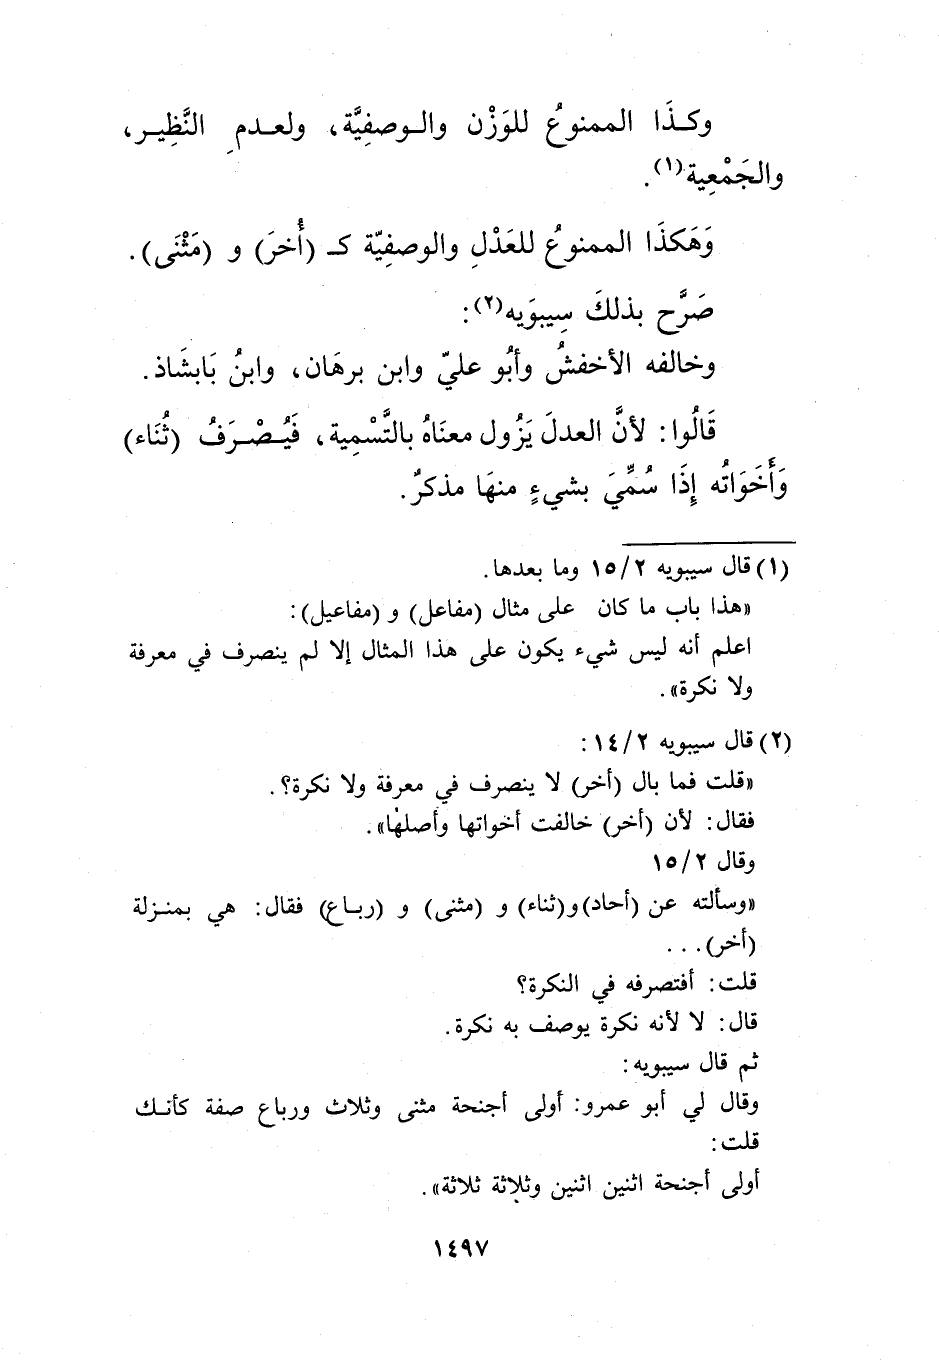 وكَـذَا الممنوعُ للوَزْن والـوصفِيَّة، ولعـدمِ النَّظِيـر،
والجَمْعِية(١).
وَهَكذَا الممنوعُ للعَدْلِ والوصفِيّة كـ (أُخرَ) و (مَثْنَى).
صَرَّح بذلكَ سِيبوَيه(٢):
وخالفه الأخفشُ وأبُو عليّ وابن برهَان، وابنُ بَابشَاذ.
قَالُوا: لأنَّ العدلَ يَزُول معنَاهُ بالتَّسْمِية، فَيُـصْـرَفُ (ثُنَاء)
وَأَخَوَاتُه إِذَا سُمِّيَ بشيءٍ منهَا مذكرٌ.
(١) قال سيبويه ١٥/٢ وما بعدها.
«هذا باب ما كان على مثال (مفاعل) و (مفاعيل):
اعلم أنه ليس شيء يكون على هذا المثال إلا لم ينصرف في معرفة
ولا نكرة».
(٢) قال سيبويه ١٤/٢:
«قلت فما بال (أخر) لا ينصرف في معرفة ولا نكرة؟.
فقال: لأن (أخر) خالفت أخواتها وأصلها».
وقال ١٥/٢
«وسألته عن (أحاد) و(ثناء) و (مثنى) و (ربـاع) فقال: هي بمنـزلة
(أخر)...
قلت: أفتصرفه في النكرة؟
قال: لا لأنه نكرة يوصف به نكرة.
ثم قال سيبويه:
وقال لي أبو عمرو: أولى أجنحة مثنى وثلاث ورباع صفة كأنـك
قلت:
أولى أجنحة اثنين اثنين وثلاثة ثلاثة».
١٤٩٧